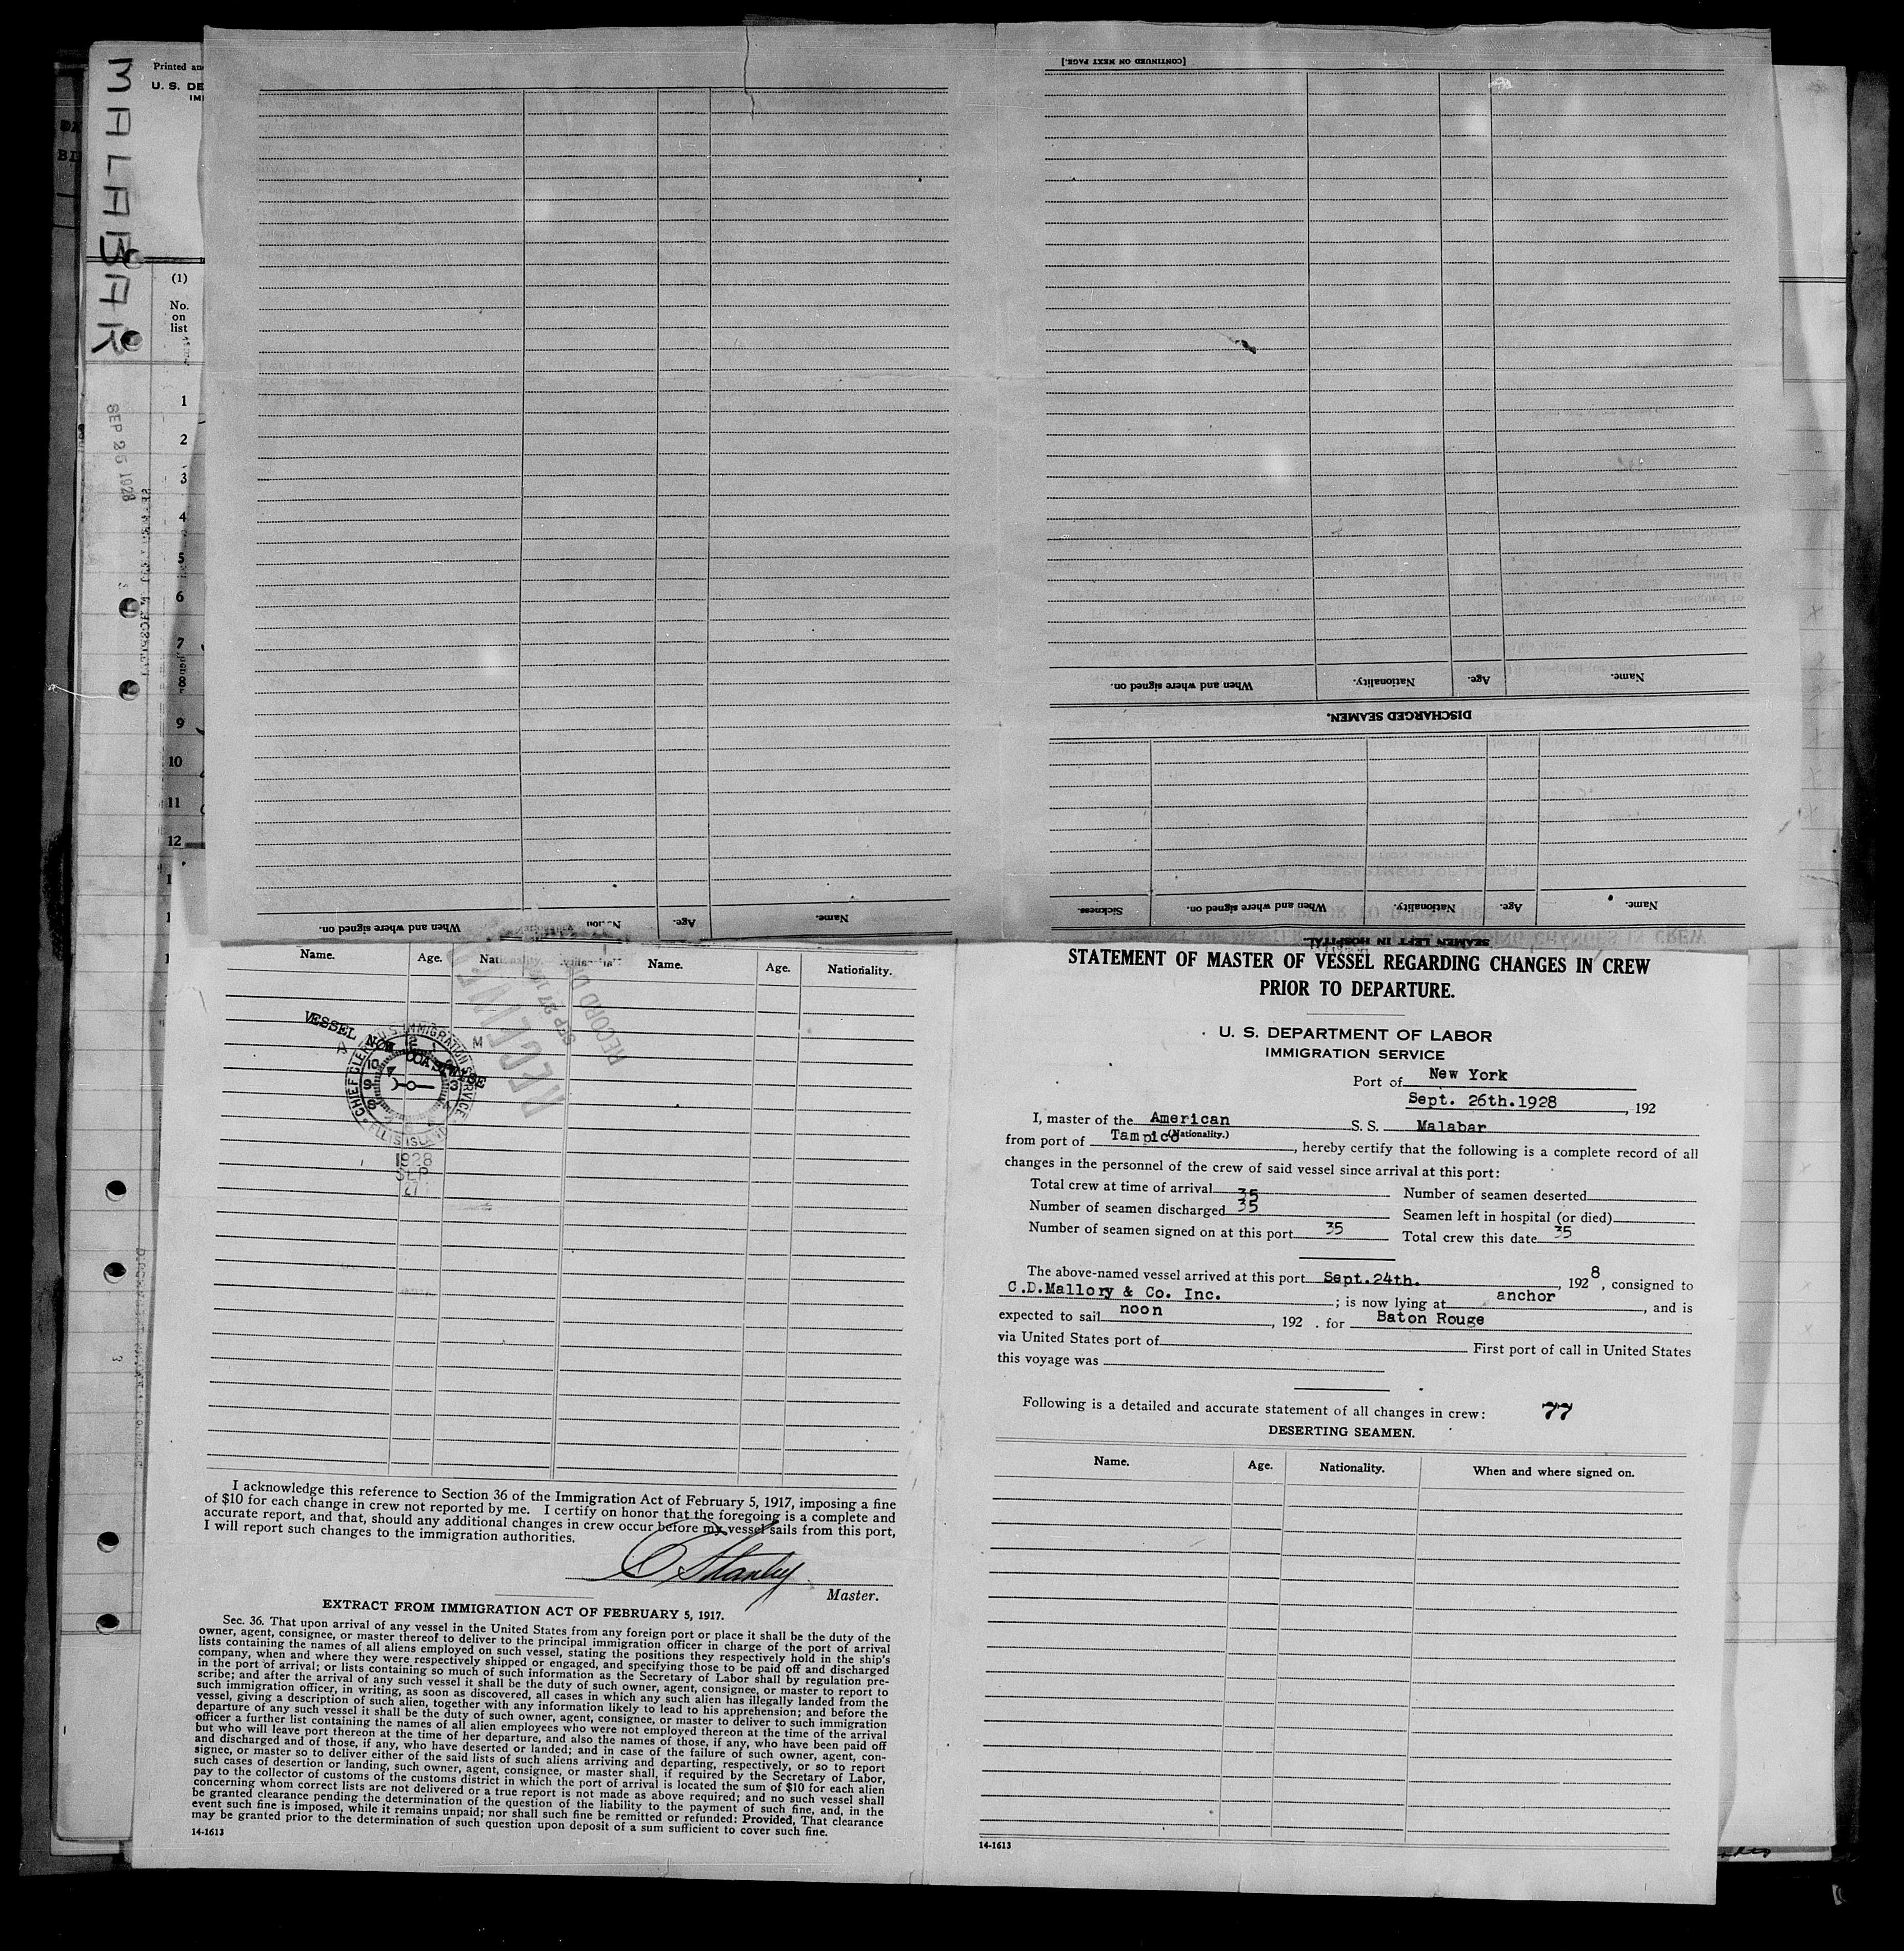 MALABAR
SEP 26 1928
Printed an
U. S. DE
IM
(1)
No.
on
list
1
2
3
4
5
6
7
8
9
10
11
12
[CONTINUED ON NEXT PAGE.]
Name. Age. Nationality. When and where signed on.
DISCHARGED SEAMEN.
Name. Age. Nationality. When and where signed on. Sickness.
SEAMEN LEFT IN HOSPITAL.
Name. Age. When and where signed on.
Name. Age. Nationality. Name. Age. Nationality.
RECEIVED
SEP 27
RECORD D
VESSEL NOW COASTWISE
CHIEF CLERK U.S. IMMIGRATION SERVICE
ELLIS ISLAND
A M
1928
SEP
27
I acknowledge this reference to Section 36 of the Immigration Act of February 5, 1917, imposing a fine
of $10 for each change in crew not reported by me. I certify on honor that the foregoing is a complete and
accurate report, and that, should any additional changes in crew occur before my vessel sails from this port,
I will report such changes to the immigration authorities.
C Stanley
Master.
EXTRACT FROM IMMIGRATION ACT OF FEBRUARY 5, 1917.
Sec. 36. That upon arrival of any vessel in the United States from any foreign port or place it shall be the duty of the
owner, agent, consignee, or master thereof to deliver to the principal immigration officer in charge of the port of arrival
lists containing the names of all aliens employed on such vessel, stating the positions they respectively hold in the ship's
company, when and where they were respectively shipped or engaged, and specifying those to be paid off and discharged
in the port of arrival; or lists containing so much of such information as the Secretary of Labor shall by regulation pre-
scribe; and after the arrival of any such vessel it shall be the duty of such owner, agent, consignee, or master to report to
such immigration officer, in writing, as soon as discovered, all cases in which any such alien has illegally landed from the
vessel, giving a description of such alien, together with any information likely to lead to his apprehension; and before the
departure of any such vessel it shall be the duty of such owner, agent, consignee, or master to deliver to such immigration
officer a further list containing the names of all alien employees who were not employed thereon at the time of the arrival
but who will leave port thereon at the time of her departure, and also the names of those, if any, who have been paid off
and discharged and of those, if any, who have deserted or landed; and in case of the failure of such owner, agent, con-
signee, or master so to deliver either of the said lists of such aliens arriving and departing, respectively, or so to report
such cases of desertion or landing, such owner, agent, consignee, or master shall, if required by the Secretary of Labor,
pay to the collector of customs of the customs district in which the port of arrival is located the sum of $10 for each alien
concerning whom correct lists are not delivered or a true report is not made as above required; and no such vessel shall
be granted clearance pending the determination of the question of the liability to the payment of such fine, and, in the
event such fine is imposed, while it remains unpaid; nor shall such fine be remitted or refunded: Provided, That clearance
may be granted prior to the determination of such question upon deposit of a sum sufficient to cover such fine.
14-1613
STATEMENT OF MASTER OF VESSEL REGARDING CHANGES IN CREW
PRIOR TO DEPARTURE.
U. S. DEPARTMENT OF LABOR
IMMIGRATION SERVICE
Port of New York
Sept. 26th.1928, 192
I, master of the American S. S. Malabar
(Nationality.)
from port of Tampico, hereby certify that the following is a complete record of all
changes in the personnel of the crew of said vessel since arrival at this port:
Total crew at time of arrival 35 Number of seamen deserted
Number of seamen discharged 35 Seamen left in hospital (or died)
Number of seamen signed on at this port 35 Total crew this date 35
The above-named vessel arrived at this port Sept.24th., 1928, consigned to
C.D.Mallory & Co. Inc.; is now lying at anchor, and is
expected to sail noon, 192 . for Baton Rouge
via United States port of First port of call in United States
this voyage was
Following is a detailed and accurate statement of all changes in crew: 77
DESERTING SEAMEN.
Name. Age. Nationality. When and where signed on.
14-1613